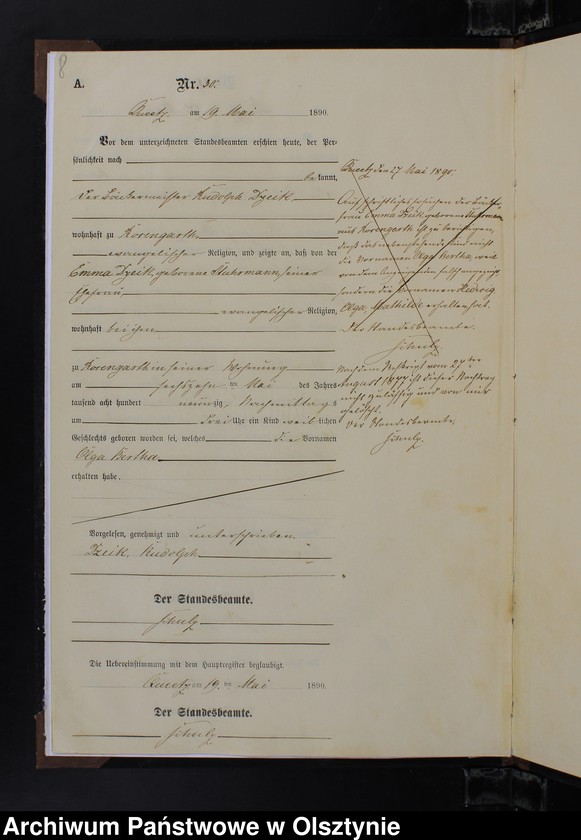 8
A.
Nr. 30.
Quetz am 19. Mai 1890.
Vor dem unterzeichneten Standesbeamten erschien heute, der Per-
sönlichkeit nach
bekannt,
der Bäckermeister Rudolph Dzeik
wohnhaft zu Rosengarth
evangelischer Religion, und zeigte an, daß von der
Emma Dzeik, geborene Stuhrmann, seiner
Ehefrau
evangelischer Religion,
wohnhaft bei ihm
zu Rosengarth in seiner Wohnung
am sechszehn ten Mai des Jahres
tausend acht hundert neunzig Nachmittags
um drei Uhr ein Kind weiblichen
Geschlechts geboren worden sei, welches die Vornamen
Olga Bertha
erhalten habe.
Vorgelesen, genehmigt und unterschrieben.
Dzeik, Rudolph
Der Standesbeamte.
Schulz
Die Uebereinstimmung mit dem Hauptregister beglaubigt.
Quetz am 19. ten Mai 1890.
Der Standesbeamte.
Schulz
Quetz den 27 Mai 1890.
Auf schriftliches der
frau Emma Dzeik geborene Stuhrmann
aus Rosengarth ist zu berichtigen,
daß das nebenstehende Kind nicht
die Vornamen Olga Bertha, weil
von dem Anzeigenden falsch angezeigt
sondern die Vornamen Hedwig
Olga, Mathilde erhalten hat.
Der Standesbeamte.
Schulz
Nach dem Reskript vom 27ten
August 1877 ist dieser Nachtrag
nicht zulässig und von mir
gelöscht.
Der Standesbeamte,
Schulz.
Archiwum Państwowe w Olsztynie